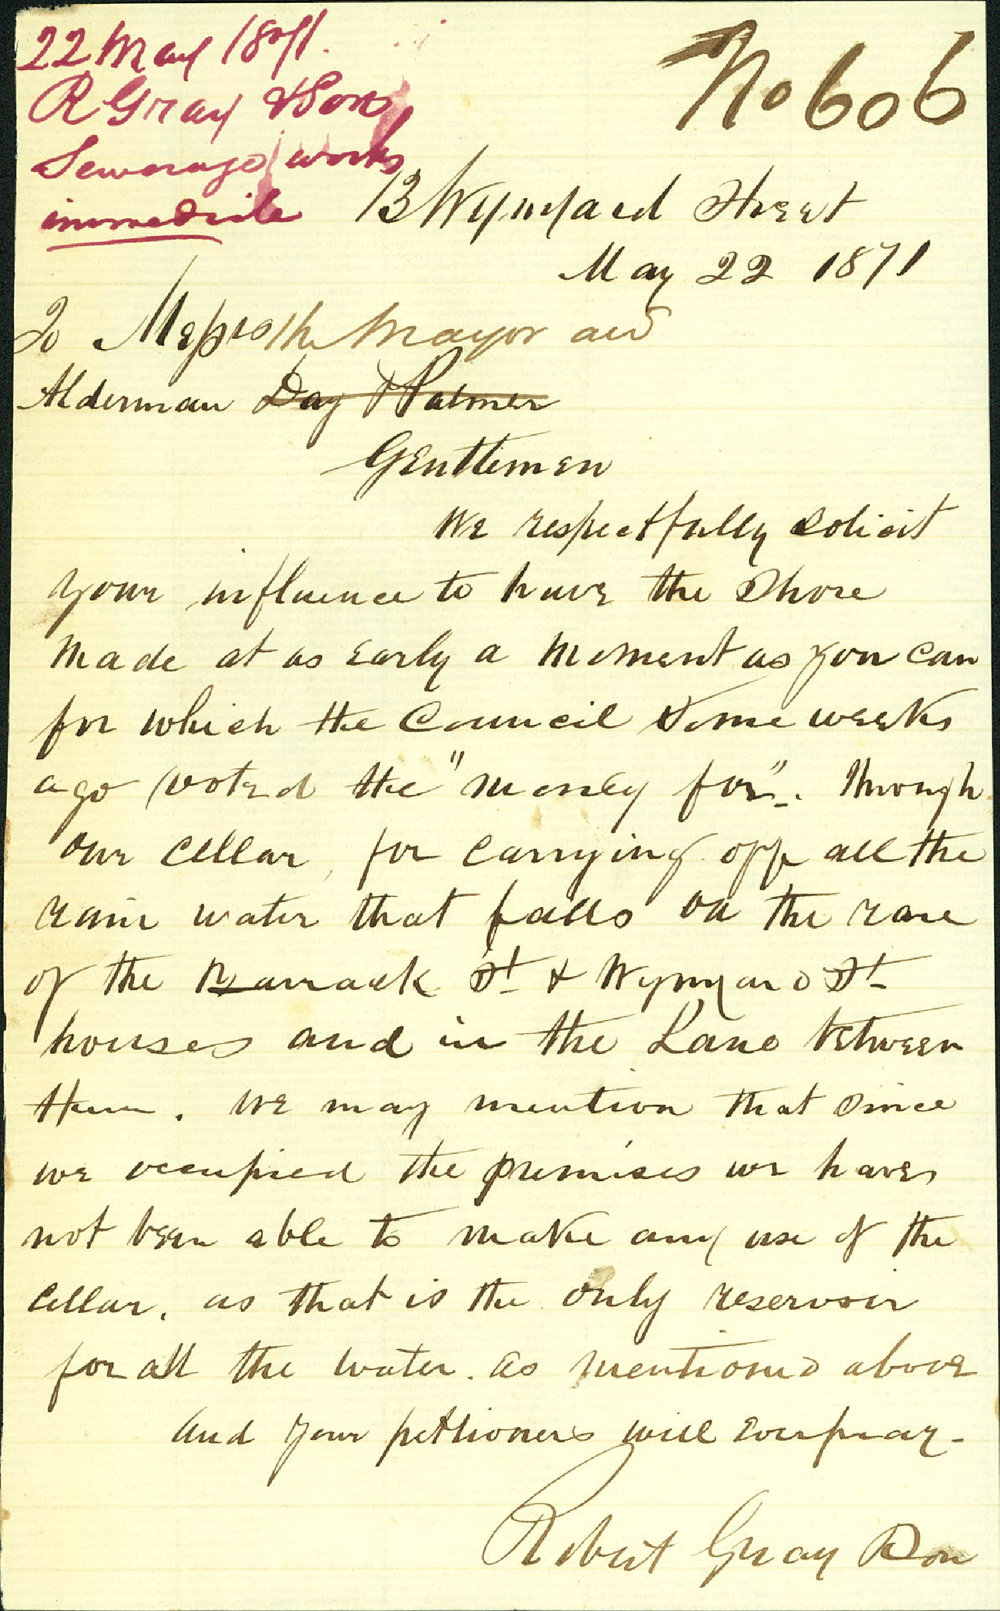 22 May 1871.
R Gray & Son
Sewerage works
immediate
No 606
13 Wynyard Street
May 22 1871
To Messrs the Mayor and
Alderman Day & Palmer
Gentlemen
We respectfully solicit
your influence to have the Shore
made at as early a moment as you can
for which the Council some weeks
ago voted the "money for". through
our cellar, for carrying off all the
rain water that falls on the rare
of the Barrack St & Wynyard St
houses and in the Lane between
them. We may mention that since
we occupied the premises we have
not been able to make any use of the
cellar. as that is the only reservoir
for all the water. as mentioned above
and your pettioners will ever pray-
Robert Gray Son